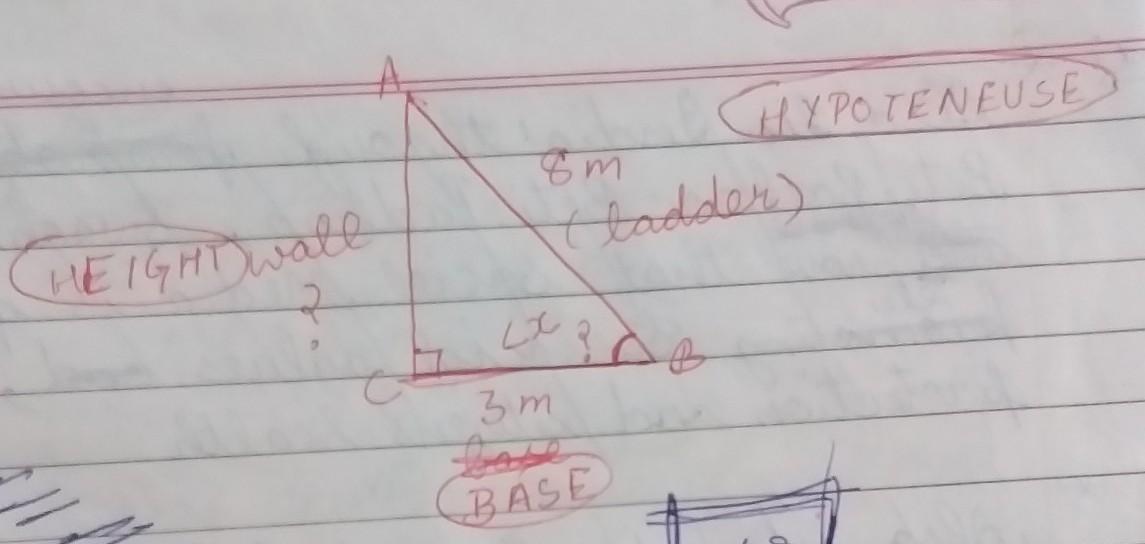 A
HYPOTENEUSE
8m
(ladder)
HEIGHT wall
?
∠x ?
C
B
3m
BASE